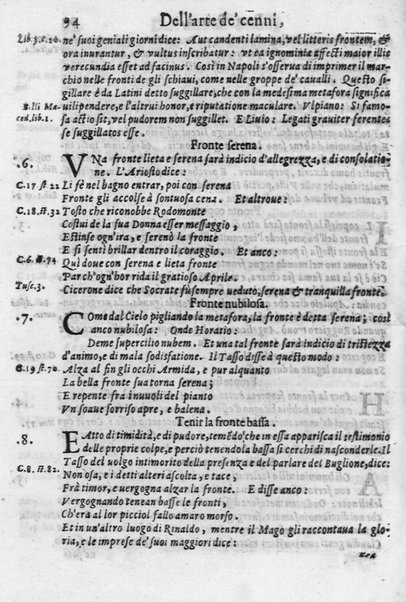 94 Dell'arte de' cenni,
Lib 3. c. 26. ne' suoi geniali giorni dice: Aut candenti lamina, vel litteris frontem, &
ora inurantur, & vultus inscribatur: vt ea ignominia affecti maior illis
verecundia esset ad facinus. Così in Napoli s'osserua di imprimer il mar-
chio nelle fronti de gli schiaui, come nelle groppe de' caualli. Questo si-
gillare è da Latini detto suggillare, che con la medesima metafora significa
Belli Ma uilipendere, e l'altrui honor, e riputatione maculare. Vlpiano: Si famo-
ced. lib. 1. sa actio sit, vel pudorem non suggillet. E Liuio: Legati grauiter ferentes
se suggillatos esse.
Fronte serena.
.6. VNa fronte lieta e serena sarà indicio d'allegrezza, e di consolatio-
ne. L'Ariosto dice:
C. 17 st 22 Li fè nel bagno entrar, poi con serena
Fronte gli accolse à sontuosa cena. Et altroue:
C. 18. st. 32 Tosto che riconobbe Rodomonte
Costui de la sua Donna esser messaggio,
Estinse ogn'ira, e serenò la fronte
E si sentì brillar dentro il coraggio. Et anco:
C. 6. st. 74 Qui doue con serena e lieta fronte
Par ch'ogn'hor rida il gratioso Aprile.
Tusc. 3. Cicerone dice che Socrate fu sempre ueduto, serena & tranquilla fronte.
Fronte nubilosa.
.7. COme dal Cielo pigliando la metafora, la fronte è detta serena; così
anco nubilosa: Onde Horatio:
Deme supercilio nubem. Et una tal fronte sarà indicio di tristezza
d'animo, e di mala sodisfatione. Il Tasso disse à questo modo:
C. 19 st. 70. Alza al fin gli occhi Armida, e pur alquanto
La bella fronte sua torna serena;
E repente fra i nuuoli del pianto
Vn soaue sorriso apre, e balena.
Tenir la fronte bassa.
.8. E Atto di timidità, e di pudore, temẽdo che in essa apparisca il testimonio
delle proprie colpe, e perciò tenendola bassa si cerchi di nasconderle. Il
C. 8. st. 82. Tasso del uolgo intimorito della presenza e del parlare del Buglione, dice:
Non osa, e i detti alteri ascolta, e tace,
Frà timor, e uergogna alzar la fronte. E disse anco:
Vergognando tenean basse le fronti,
Ch'era al lor picciol fallo amaro morso.
Et in un'altro luogo di Rinaldo, mentre il Mago gli raccontaua la glo-
ria, e le imprese de' suoi maggiori dice: